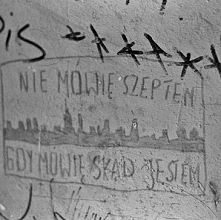 PIS ****
NIE MÓWIĘ SZEPTEM
GDY MÓWIĘ SKĄD JESTEM